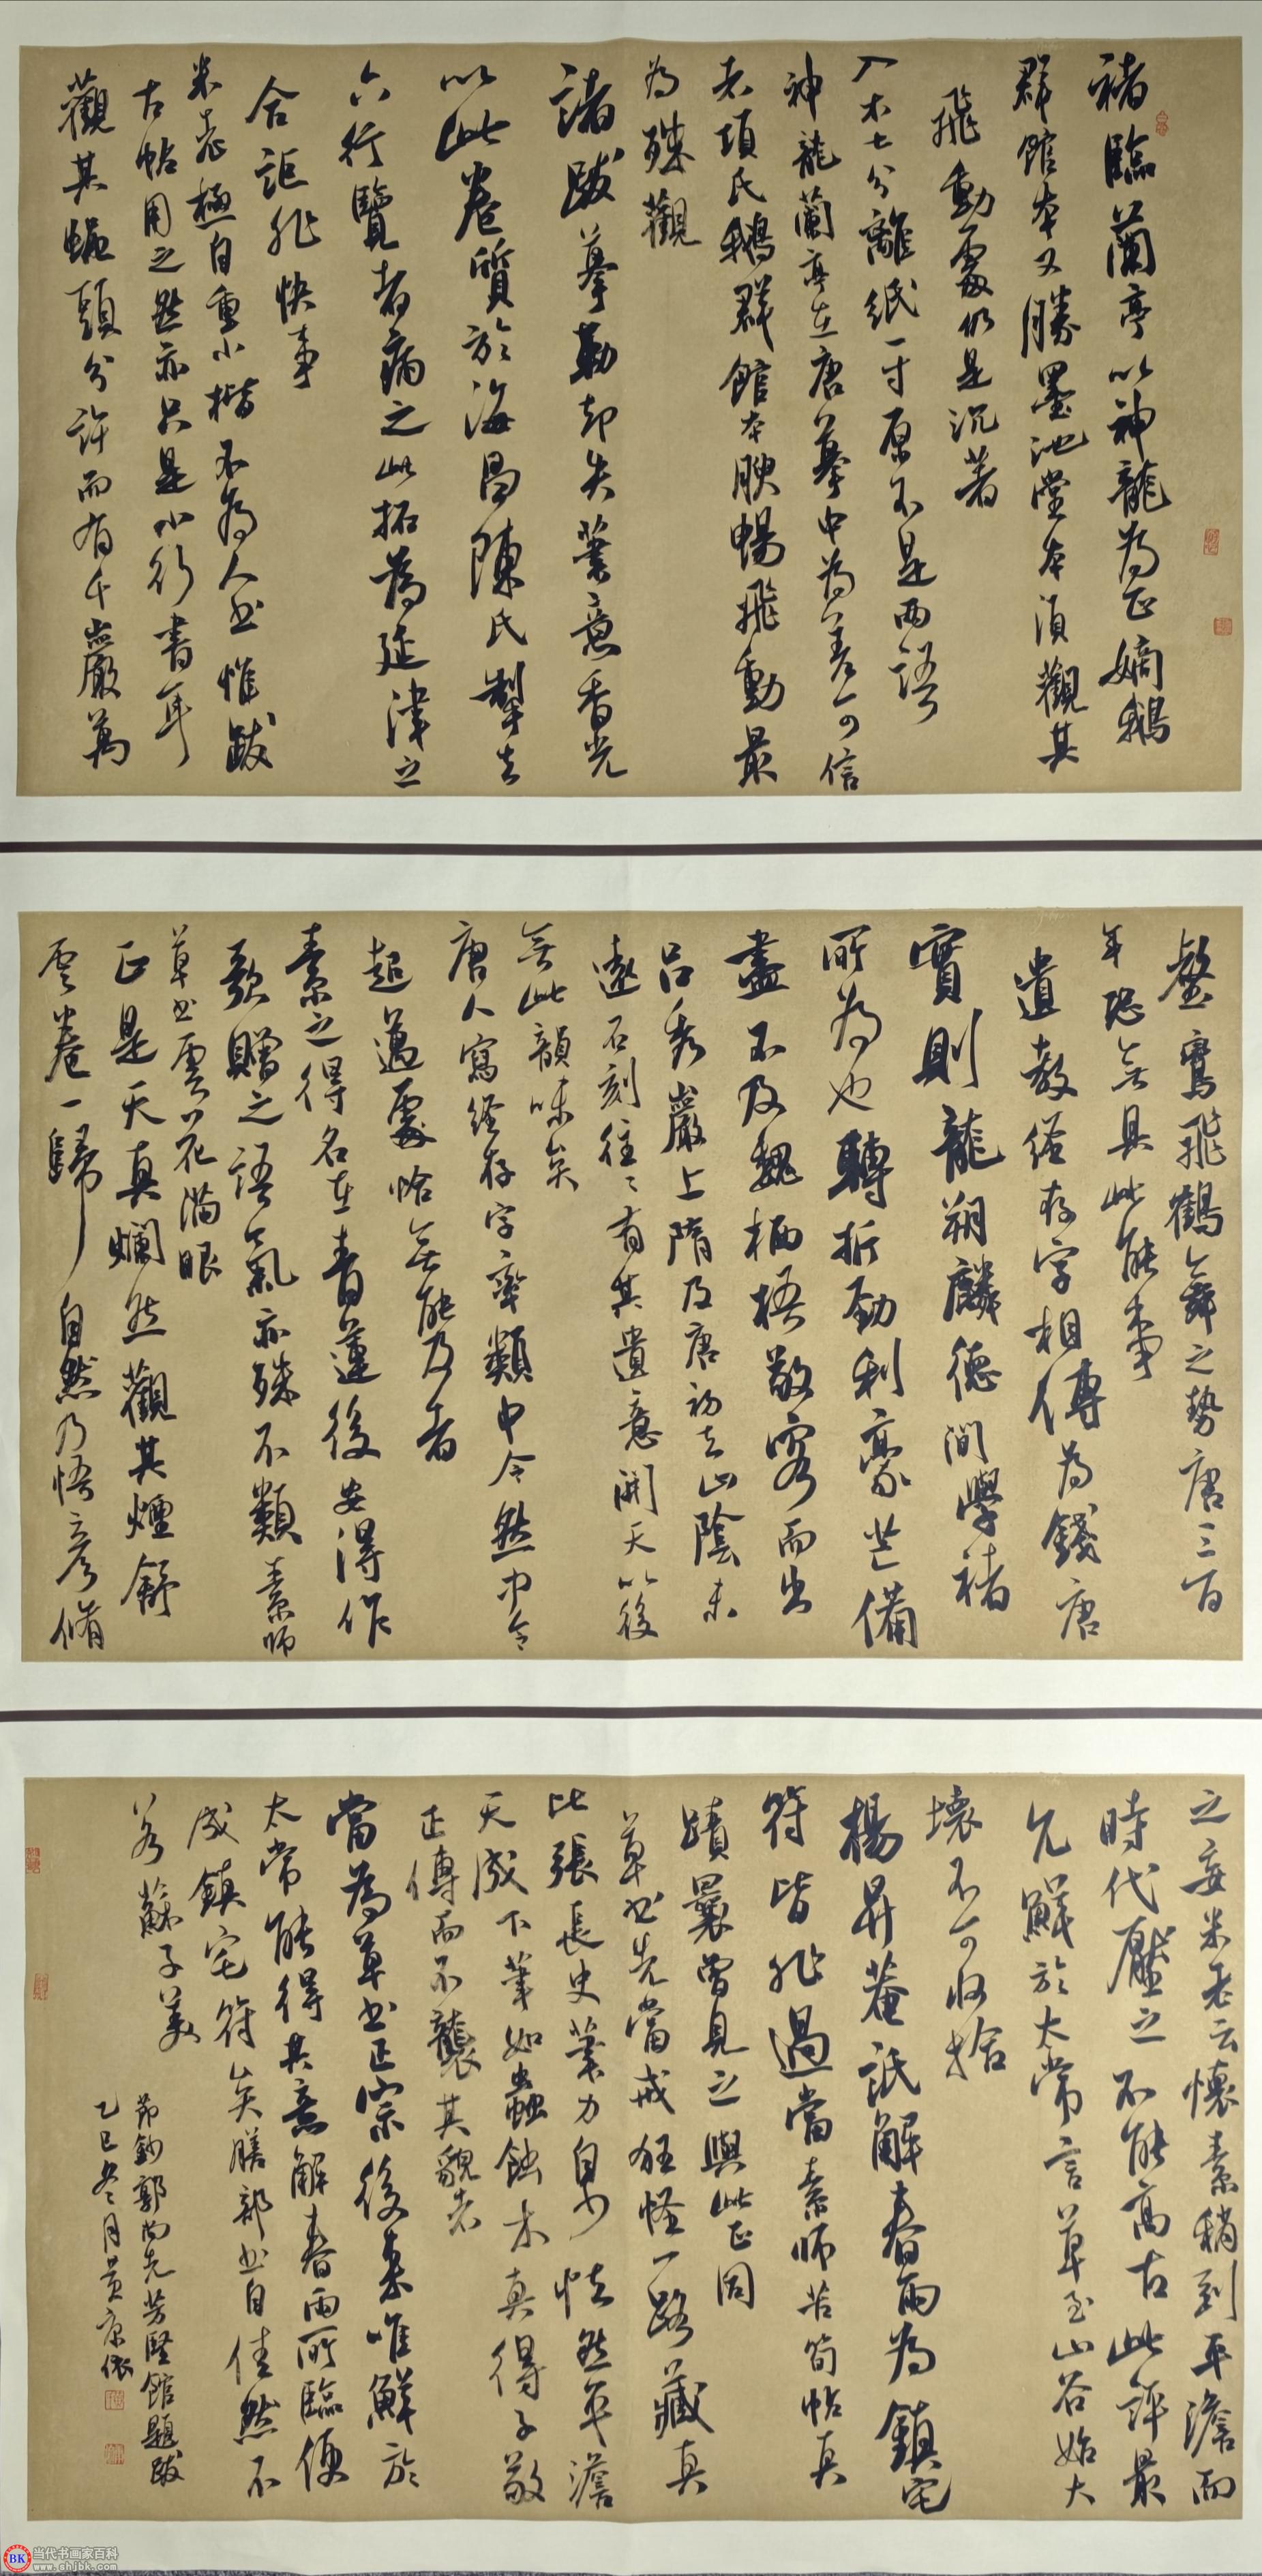 褚臨蘭亭以神龍為正嫡鵝
群館本又勝墨池堂本須觀其
飛動處仍是沉著
入木七分離紙一寸原不是兩語
神龍蘭亭在唐摹中為差可信
者項氏鵝群館本腴暢飛動最
為殊觀
諸跋摹勒却失筆意香光
以此卷質於海昌陳氏掣去
六行覽者病之此拓為延津之
合詎非快事
米老極自重小楷不為人書惟跋
古帖用之然亦只是小行書耳
觀其蠅頭分許而有千巖萬
壑鸞飛鶴舞之勢唐三百
年恐無具此能事
遺教經存字相傳為錢唐
實則龍朔麟德間學褚
所為也轉折勁利豪芒備
盡不及魏栖梧敬客而出
呂秀巖上隋及唐初去山陰未
遠石刻往往有其遺意開天以後
無此韻味矣
唐人寫經存字率類中令然中令
超邁處恰無能及者
素之得名在青蓮後安得作
歌贈之語氣亦殊不類素師
草書雲花滿眼
正是天真爛然觀其煙舒
雲卷一歸自然乃悟彥脩
之妄米老云懷素稍到平澹而
時代壓之不能高古此評最
允鮮於太常言草至山谷始大
壞不可收拾
楊升菴詆解春雨為鎮宅
符皆非過當素師苦筍帖真
蹟曩曾見之與此正同
草書先當戒狂怪一路藏真
比張長史筆力自少怯然平澹
天成下筆如蟲蝕木真得子敬
正傳而不襲其貌者
當為草書正宗後來唯鮮於
太常能得其意解春雨所臨便
成鎮宅符矣膳部書自佳然不
若蘇子美
節鈔郭尚先芳堅館題跋
乙巳冬月黃康俶
BK
当代书画家百科
www.shjbk.com